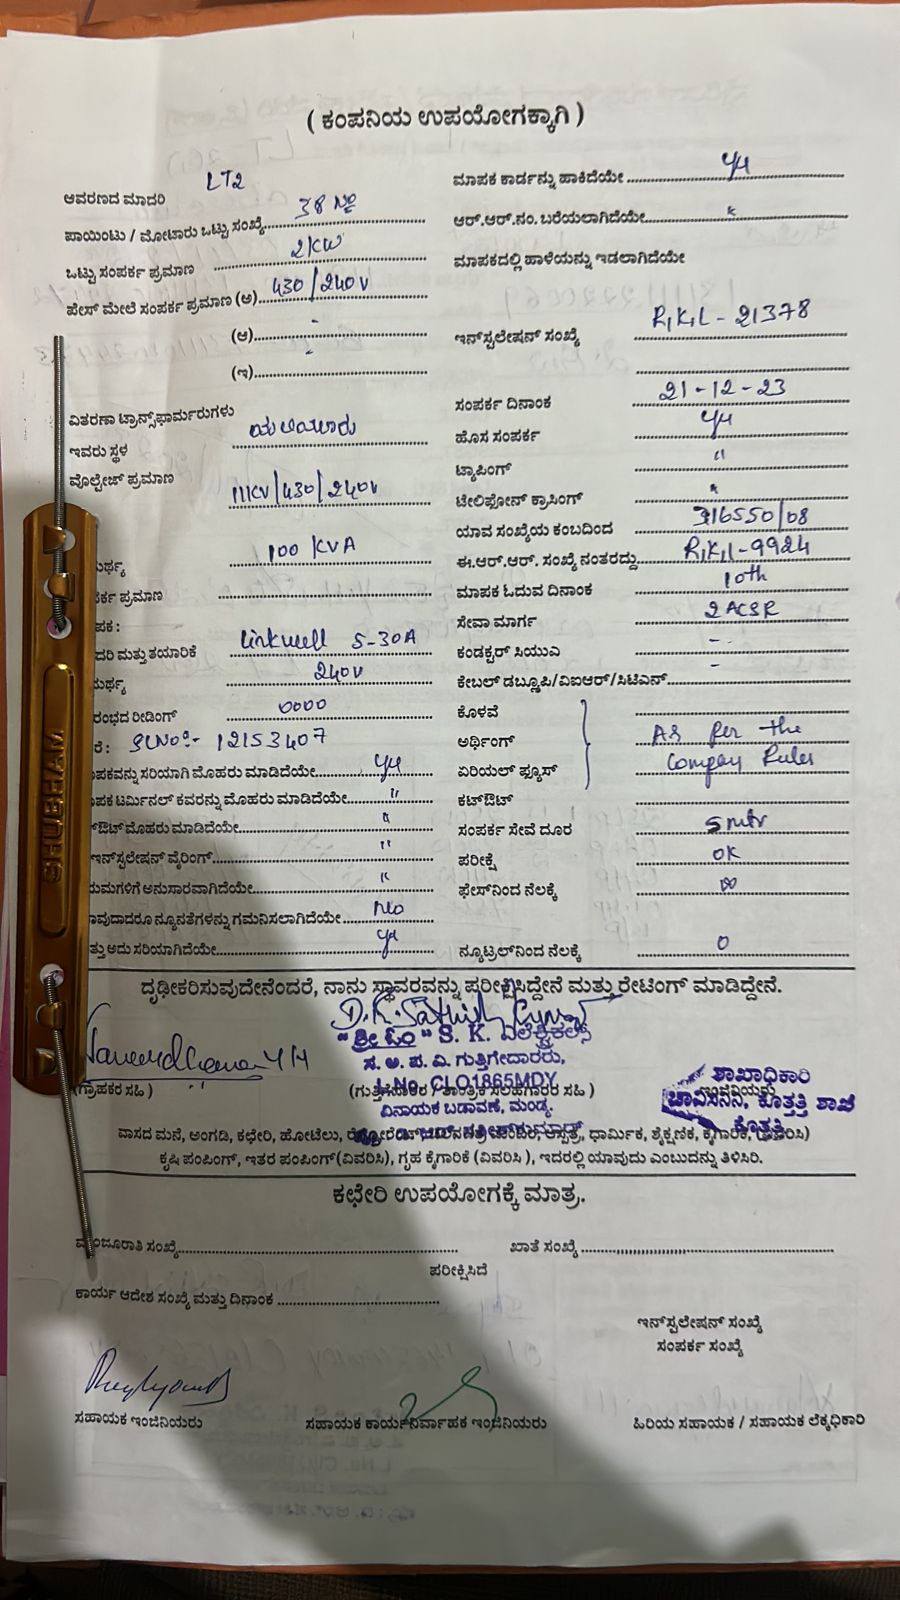 ( ಕಂಪನಿಯ ಉಪಯೋಗಕ್ಕಾಗಿ )
ಆವರಣದ ಮಾದರಿ LT2
ಪಾಯಿಂಟು / ಮೋಟಾರು ಒಟ್ಟು ಸಂಖ್ಯೆ 38 No
ಒಟ್ಟು ಸಂಪರ್ಕ ಪ್ರಮಾಣ 2KW
ಫೇಸ್ ಮೇಲೆ ಸಂಪರ್ಕ ಪ್ರಮಾಣ (ಅ) 430/240V
(ಆ) -
(ಇ) -
ವಿತರಣಾ ಟ್ರಾನ್ಸ್‌ಫಾರ್ಮರುಗಳು
ಇವರು ಸ್ಥಳ
ವೊಲ್ಟೇಜ್ ಪ್ರಮಾಣ 11KV/430/240V
ರ್ಥ್ಯ 100 KVA
ರ್ಕ ಪ್ರಮಾಣ
ಪಕ :
ದರಿ ಮತ್ತು ತಯಾರಿಕೆ Linkwell 5-30A
ಮರ್ಥ್ಯ 240V
ರಂಭದ ರೀಡಿಂಗ್ 0000
ರೆ : SLNo:- 12153407
ಪಕವನ್ನು ಸರಿಯಾಗಿ ಮೊಹರು ಮಾಡಿದೆಯೇ
ಪಕ ಟರ್ಮಿನಲ್ ಕವರನ್ನು ಮೊಹರು ಮಾಡಿದೆಯೇ "
ಔಟ್ ಮೊಹರು ಮಾಡಿದೆಯೇ "
ಇನ್‌ಸ್ಟಲೇಷನ್ ವೈರಿಂಗ್ "
ಯಮಗಳಿಗೆ ಅನುಸಾರವಾಗಿದೆಯೇ "
ಾವುದಾದರೂ ನ್ಯೂನತೆಗಳನ್ನು ಗಮನಿಸಲಾಗಿದೆಯೇ No
ತ್ತು ಅದು ಸರಿಯಾಗಿದೆಯೇ
ಮಾಪಕ ಕಾರ್ಡನ್ನು ಹಾಕಿದೆಯೇ
ಆರ್.ಆರ್.ನಂ. ಬರೆಯಲಾಗಿದೆಯೇ
ಮಾಪಕದಲ್ಲಿ ಹಾಳೆಯನ್ನು ಇಡಲಾಗಿದೆಯೇ
ಇನ್‌ಸ್ಟಲೇಷನ್ ಸಂಖ್ಯೆ R,K,L - 21378
ಸಂಪರ್ಕ ದಿನಾಂಕ 21-12-23
ಹೊಸ ಸಂಪರ್ಕ
ಟ್ಯಾಪಿಂಗ್ "
ಟೇಲಿಫೋನ್ ಕ್ರಾಸಿಂಗ್
ಯಾವ ಸಂಖ್ಯೆಯ ಕಂಬದಿಂದ 316550/08
ಈ.ಆರ್.ಆರ್. ಸಂಖ್ಯೆ ನಂತರದ್ದು R,K,L-9924
ಮಾಪಕ ಓದುವ ದಿನಾಂಕ 10th
ಸೇವಾ ಮಾರ್ಗ 2 ACSR
ಕಂಡಕ್ಟರ್ ಸಿಯುಎ -
ಕೇಬಲ್ ಡಬ್ಲೂಪಿ/ವಿಐಆರ್/ಸಿಟಿಎನ್ -
ಕೊಳವೆ
ಅರ್ಥಿಂಗ್ As per the
ಏರಿಯಲ್ ಫ್ಯೂಸ್ Company Rules
ಕಟ್‌ಔಟ್
ಸಂಪರ್ಕ ಸೇವೆ ದೂರ 5 mtr
ಪರೀಕ್ಷೆ OK
ಫೇಸ್‌ನಿಂದ ನೆಲಕ್ಕೆ ∞
ನ್ಯೂಟ್ರಲ್‌ನಿಂದ ನೆಲಕ್ಕೆ 0
ದೃಢೀಕರಿಸುವುದೇನೆಂದರೆ, ನಾನು ಸ್ಥಾವರವನ್ನು ಪರೀಕ್ಷಿಸಿದ್ದೇನೆ ಮತ್ತು ರೇಟಿಂಗ್ ಮಾಡಿದ್ದೇನೆ.
"ಶ್ರೀ ಓಂ" S. K. ಎಲೆಕ್ಟ್ರಿಕಲ್ಸ್
ಸ. ಅ. ಪ. ವಿ. ಗುತ್ತಿಗೇದಾರರು,
L.No. CLO1865MDY
ವಿನಾಯಕ ಬಡಾವಣೆ, ಮಂಡ್ಯ.
(ಗ್ರಾಹಕರ ಸಹಿ) (ಗುತ್ತಿಗೆದಾರರ / ತಾಂತ್ರಿಕ ಸಲಹಗಾರರ ಸಹಿ )
ಶಾಖಾಧಿಕಾರಿ
ಚಾವಿಸನಿನಿ, ಕೊತ್ತತ್ತಿ ಶಾಖೆ
ಕೊತ್ತತ್ತಿ
ವಾಸದ ಮನೆ, ಅಂಗಡಿ, ಕಛೇರಿ, ಹೋಟೆಲು, ಧಾರ್ಮಿಕ, ಶೈಕ್ಷಣಿಕ, ಕೈಗಾರಿಕೆ, (ವಿವರಿಸಿ)
ಕೃಷಿ ಪಂಪಿಂಗ್, ಇತರ ಪಂಪಿಂಗ್ (ವಿವರಿಸಿ), ಗೃಹ ಕೈಗಾರಿಕೆ (ವಿವರಿಸಿ), ಇದರಲ್ಲಿ ಯಾವುದು ಎಂಬುದನ್ನು ತಿಳಿಸಿರಿ.
ಕಛೇರಿ ಉಪಯೋಗಕ್ಕೆ ಮಾತ್ರ.
ಮಂಜೂರಾತಿ ಸಂಖ್ಯೆ ಖಾತೆ ಸಂಖ್ಯೆ
ಪರೀಕ್ಷಿಸಿದೆ
ಕಾರ್ಯ ಆದೇಶ ಸಂಖ್ಯೆ ಮತ್ತು ದಿನಾಂಕ
ಇನ್‌ಸ್ಟಲೇಷನ್ ಸಂಖ್ಯೆ
ಸಂಪರ್ಕ ಸಂಖ್ಯೆ
ಸಹಾಯಕ ಇಂಜಿನಿಯರು ಸಹಾಯಕ ಕಾರ್ಯನಿರ್ವಾಹಕ ಇಂಜಿನಿಯರು ಹಿರಿಯ ಸಹಾಯಕ / ಸಹಾಯಕ ಲೆಕ್ಕಧಿಕಾರಿ